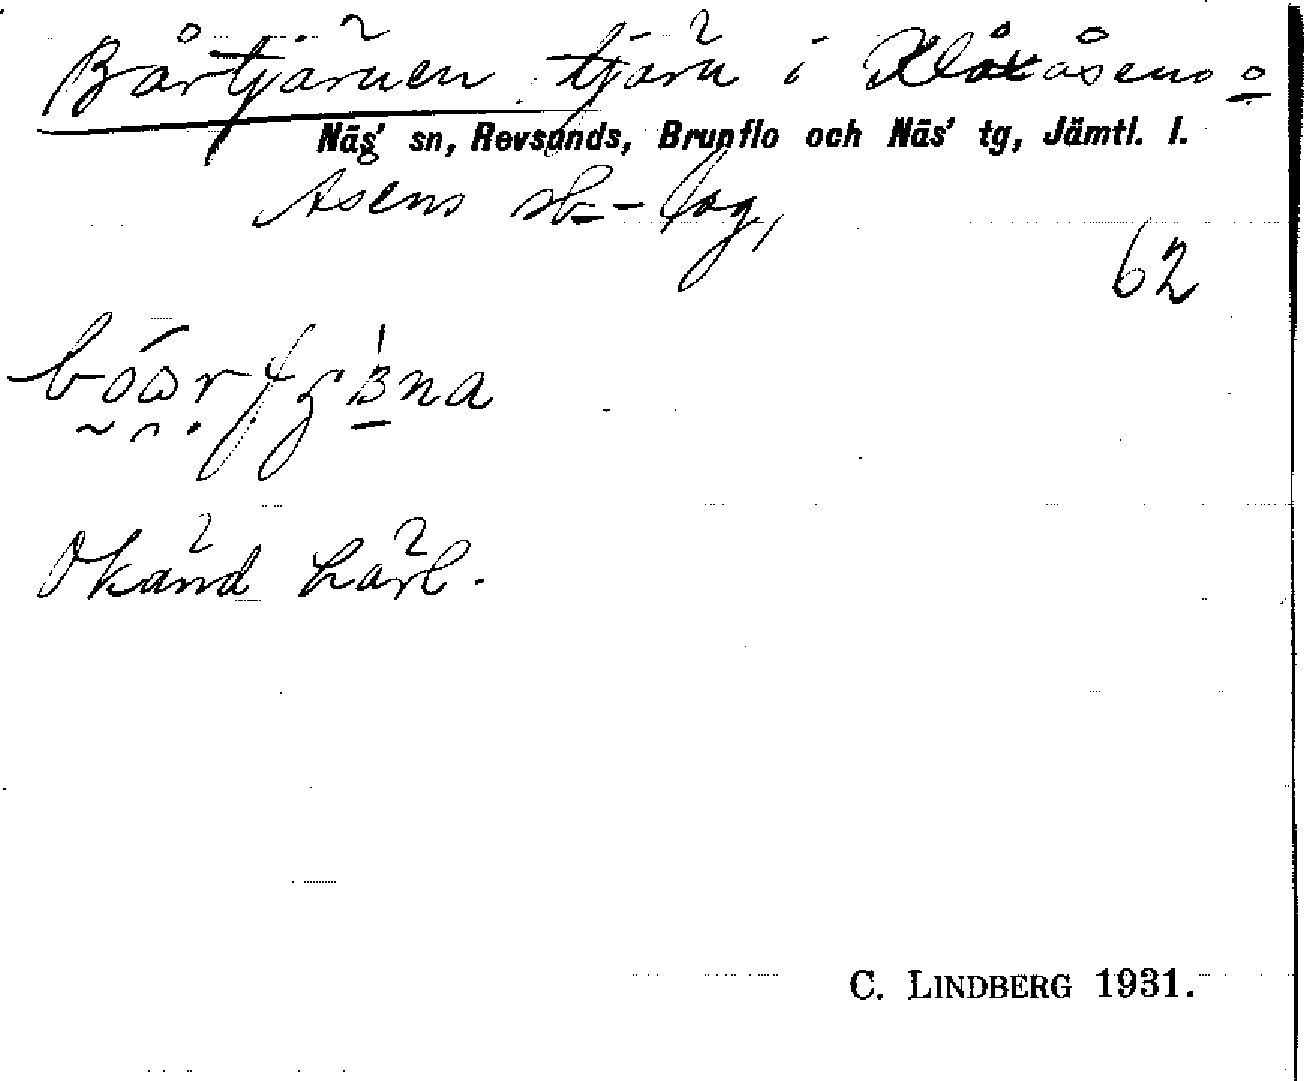 Bårtjärnen, tjärn i Klåxåsens o
Näs' sn, Revsunds, Brunflo och Näs' tg, Jämtl. l.
Åsens sk-lag,
62
Okänd härl.
C. LINDBERG 1931.